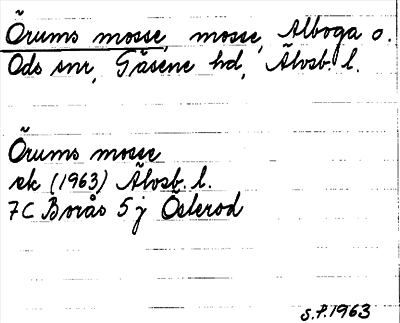 Örums mosse, mosse, Alboga o.
Ods snr, Gäsene hd, Älvsb. l.
Örums mosse
ek (1963) Älvsb. l.
7C Borås 5 j Österod
S.P. 1963